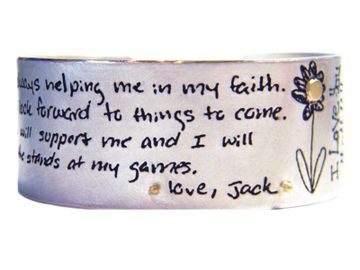 helping me in my faith.
forward to things to come.
will support me and I will
stands at my games.
love, Jack
I Love you